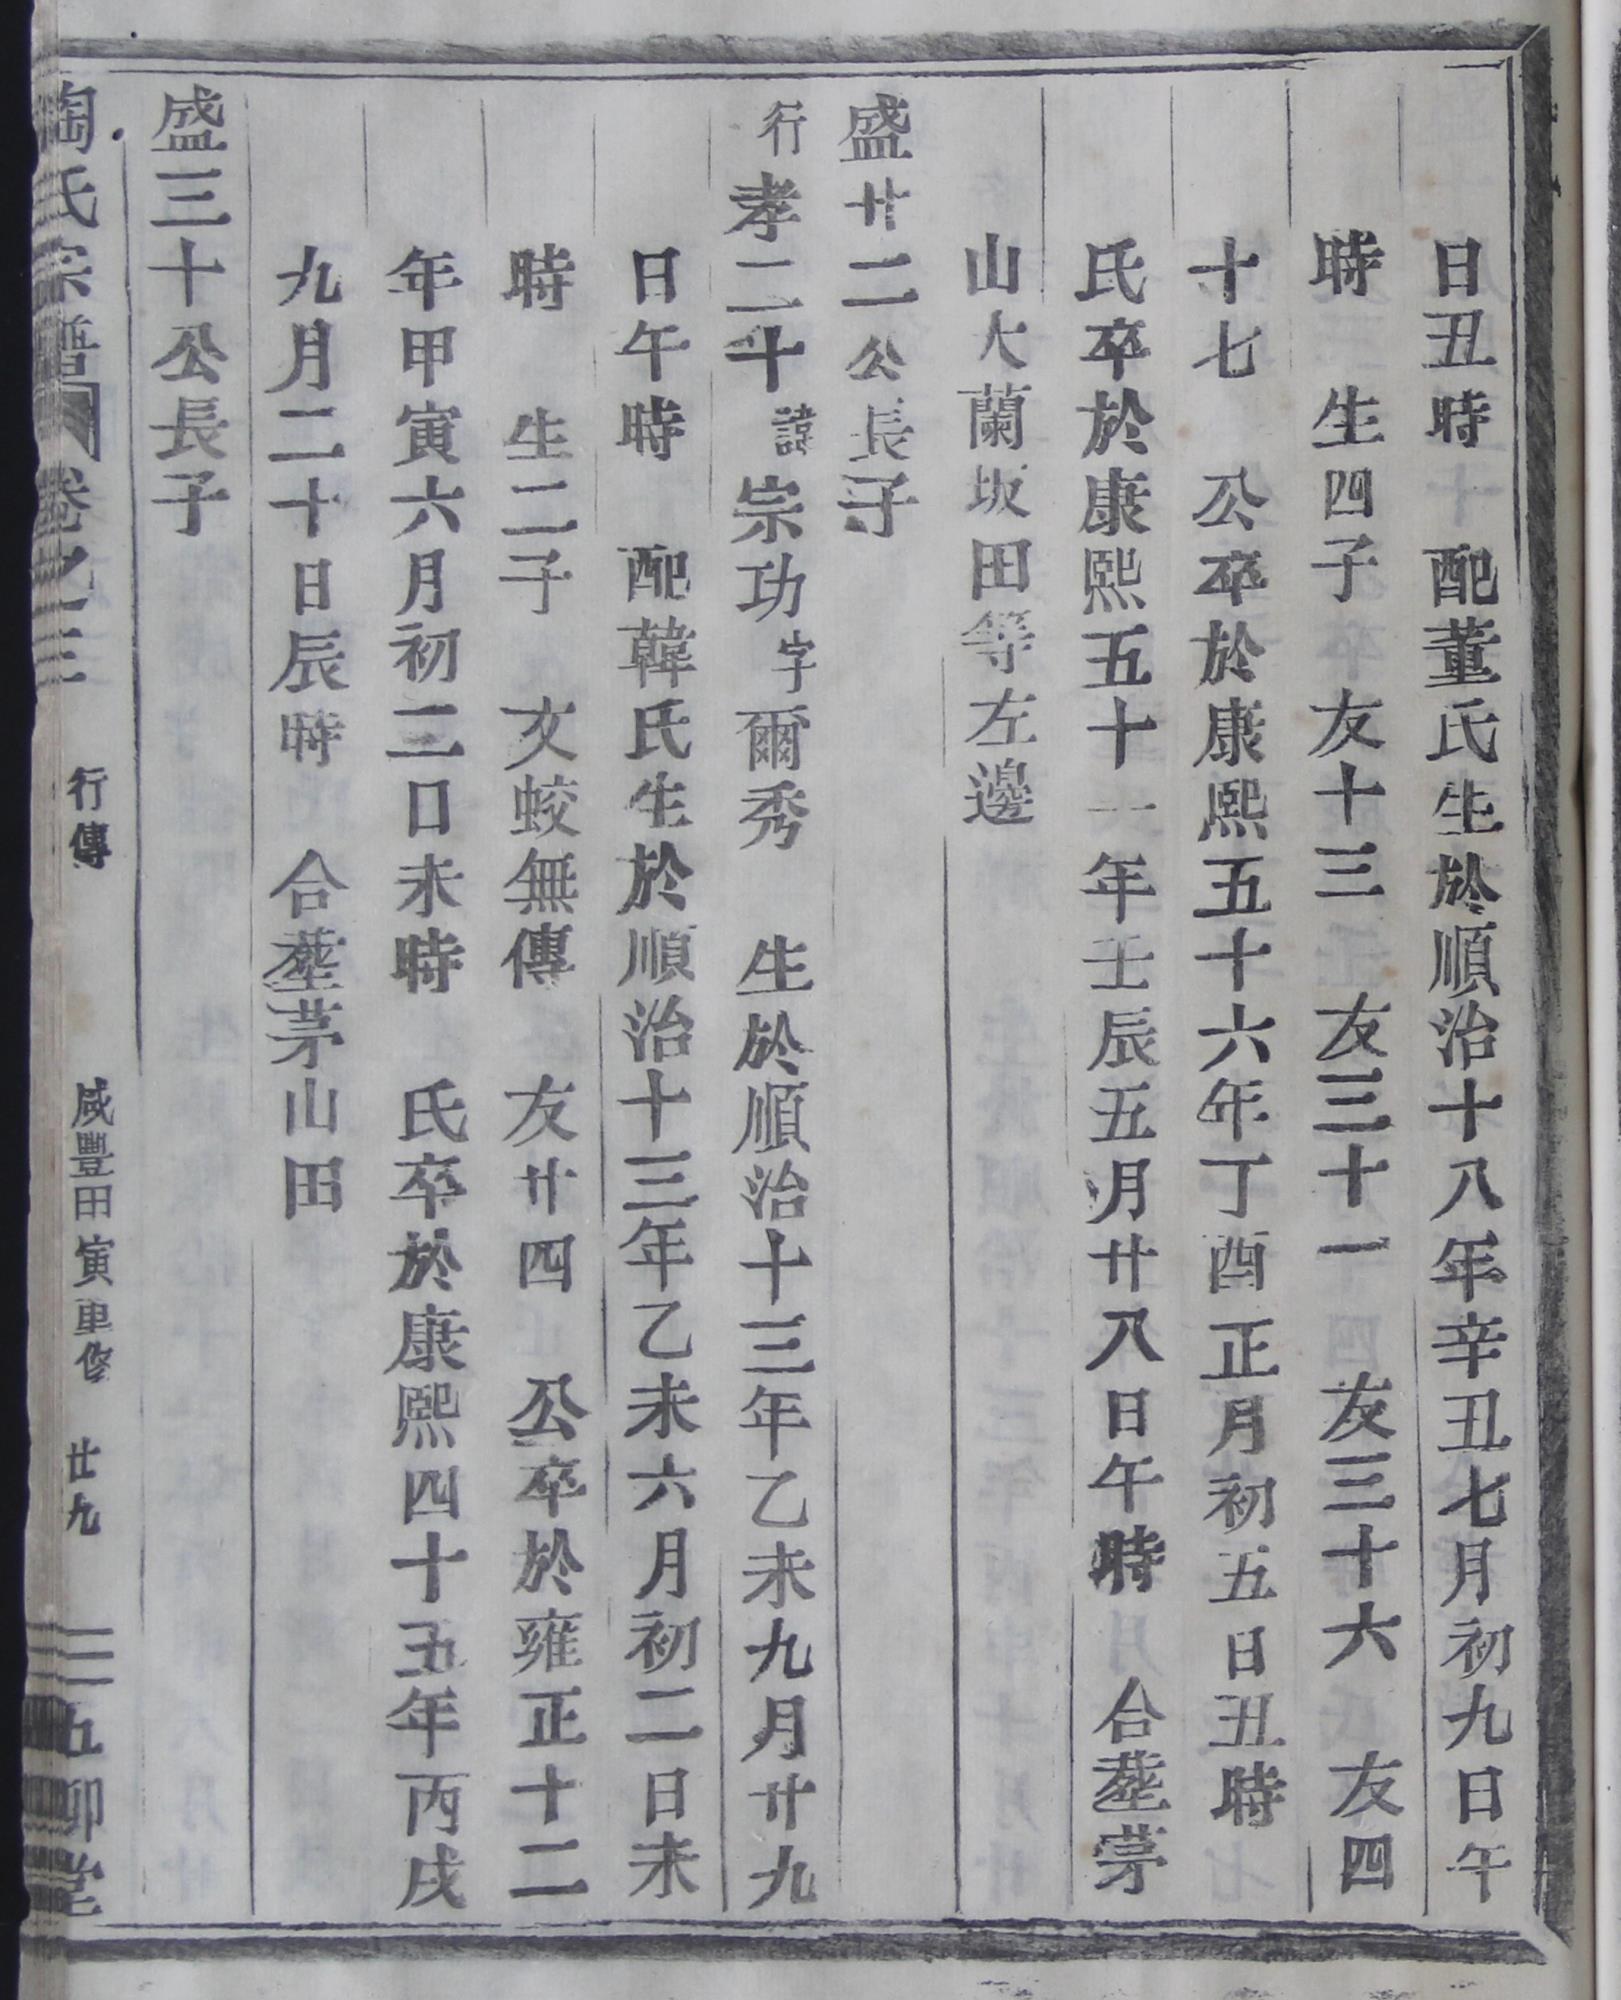 日丑時　配董氏生於順治十八年辛丑七月初九日午
時　生四子　友十三　友三十一　友三十六　友四
十七　公卒於康熙五十六年丁酉正月初五日丑時
氏卒於康熙五十一年壬辰五月廿八日午時　合塟茅
山大蘭坂田等左邊
盛廿二公長子
行孝二十諱宗功字爾秀　生於順治十三年乙未九月廿九
日午時　配韓氏生於順治十三年乙未六月初二日未
時　生二子　文蛟無傳　友廿四　公卒於雍正十二
年甲寅六月初二口未時　氏卒於康熙四十五年丙戌
九月二十日辰時　合塟茅山田
盛三十公長子
陶氏宗譜　卷之三　行傳　咸豐甲寅重修　廿九　五柳堂